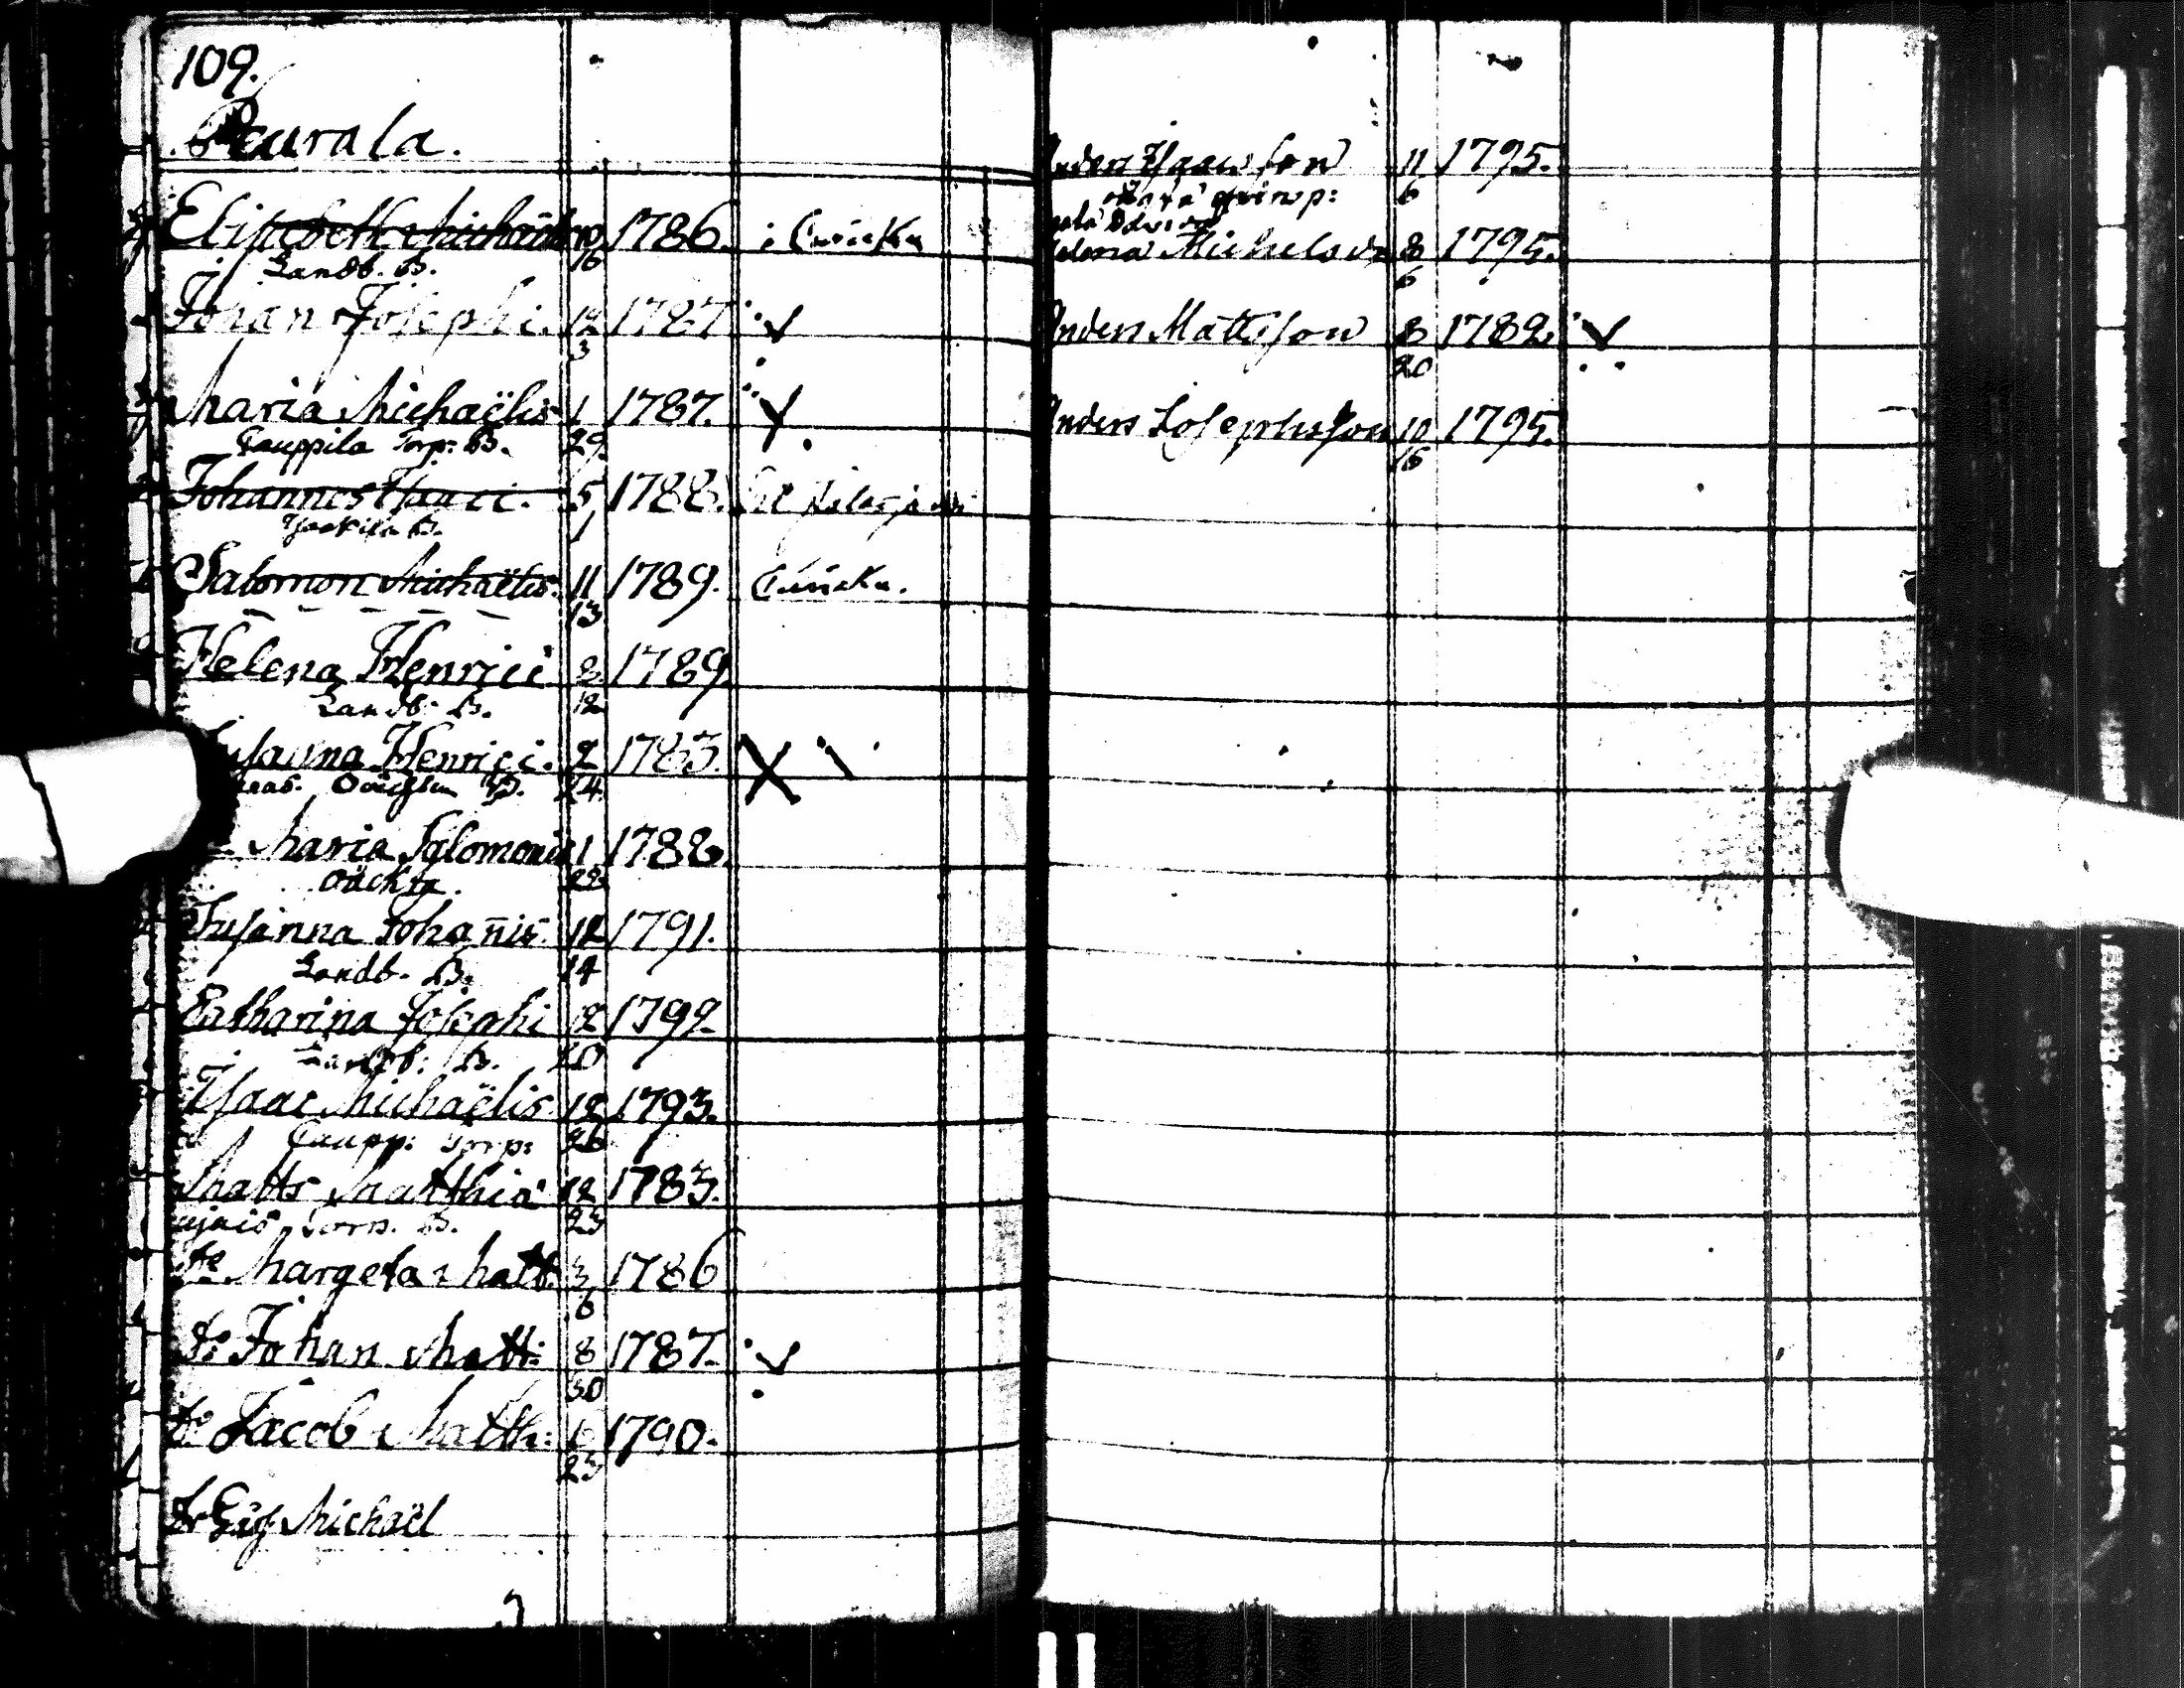 109.
Peurala.
Elisabeth Michaëlis 10 1786. i
Landb. B. 16
Johan Josephi. 12 1787
3
Maria Michaëlis 1 1787.
Cauppila Torp: B. 29
Johannes Isaaci. 5 1788.
B. 1
Salomon Michaëlis 11 1789.
13
Helena Henrici 2 1789
Landb. B. 12
Susanna Henrici. 2 1783.
24
Maria Salomonis 1 1788.
29
Susanna Johañis 12 1791.
Landb. B. 14
Catharina Josephi 2 1792.
Landb: B. 20
Isaac Michaëlis 12 1793.
Caupp: Torp: 26
Matts Matthiæ 12 1783.
Torp. B. 23
do Margeta Matt. 3 1786
6
do Johan Matt: 8 1787.
30
do Jacob Matth: 1790.
23
Michaël
Anders Isaacsson 11 1795.
6
Helena Michelsdr 8 1795.
6
Anders Mattsson 8 1782.
20
Anders Josephsson 10 1795.
16